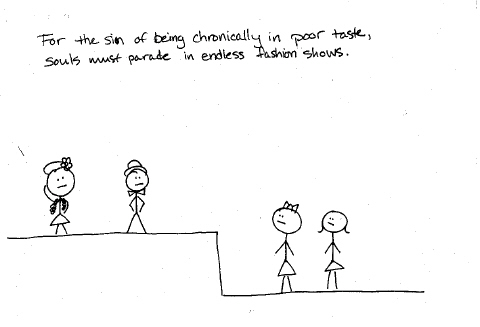 For the sin of being chronically in poor taste,
souls must parade in endless fashion shows.